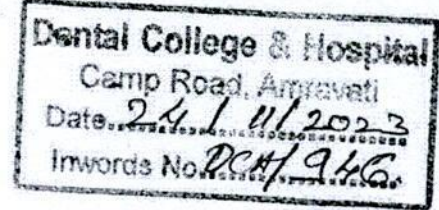 Dental College & Hospital
Camp Road, Amravati
Date. 24/11/2023
Inwords No. DCA/946.